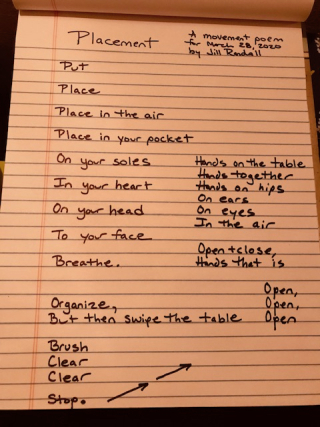 Placement
A movement poem
for March 28, 2020
by Jill Randall
Put
Place
Place in the air
Place in your pocket
On your soles
In your heart
On your head
To your face
Breathe.
Hands on the table
Hands together
Hands on hips
On ears
On eyes
In the air
Open + close,
Hands that is
Open,
Open,
Open
Organize,
But then swipe the table
Brush
Clear
Clear
Stop.